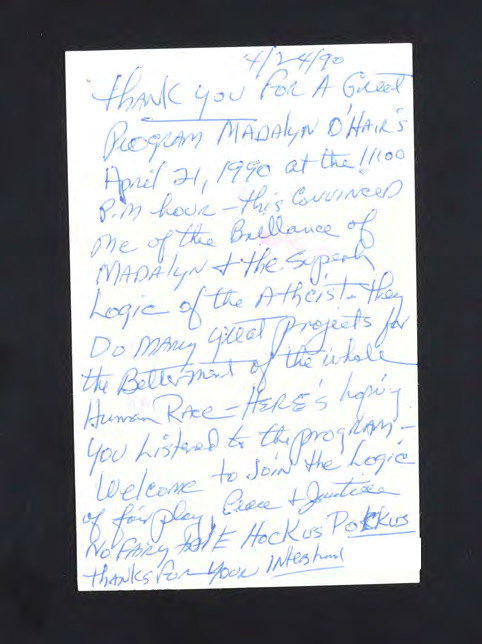 4/24/90
THANK YOU FOR A Great
PROGRAM MADALYN O'HAIR'S
April 21, 1990 at the 11:00
P.M hour - this CONVINCED
Me of the Brillance of
MADALYN + the Superb
Logic of the Atheist - they
DO MANY great projects for
the Betterment of the whole
Human Race - HERE'S hoping
You Listened to the program -
Welcome to Join the Logic
of fairplay, Peace + Justice
NO FAIRY TALE HOCKUS POCKUS
THANKS FOR YOUR Interest